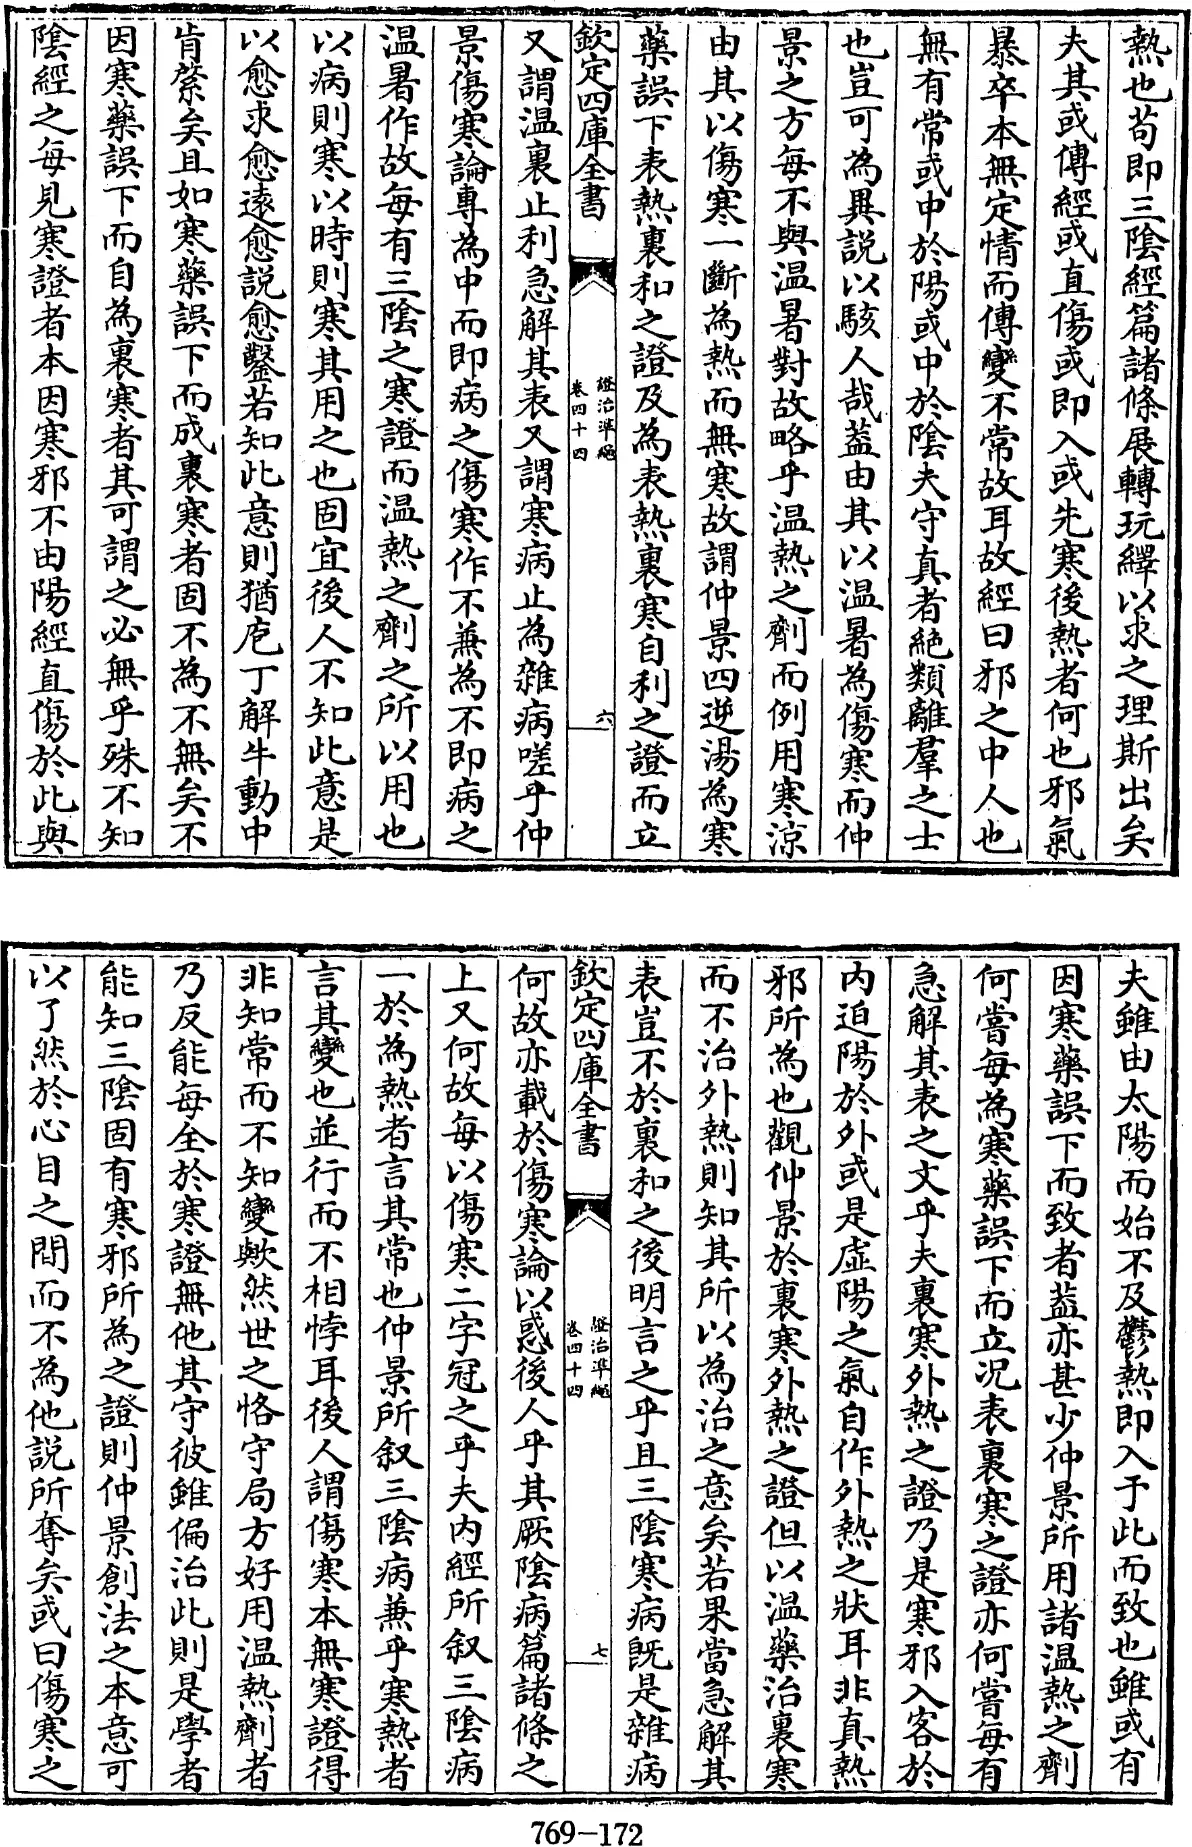 熱也苟即三陰經篇諸條展轉玩繹以求之理斯出矣
夫其或傳經或直傷或即入或先寒後熱者何也邪氣
暴卒本無定情而傳變不常故耳故經曰邪之中人也
無有常或中於陽或中於陰夫守真者絶類離羣之士
也豈可為異說以駭人哉葢由其以温暑為傷寒而仲
景之方每不與温暑對故略乎温熱之劑而例用寒涼
由其以傷寒一斷為熱而無寒故謂仲景四逆湯為寒
藥誤下表熱裏和之證及為表熱裏寒自利之證而立
欽定四庫全書
證治準繩
卷四十四
六
又謂温裏止利急解其表又謂寒病止為雜病嗟乎仲
景傷寒論專為中而即病之傷寒作不兼為不即病之
温暑作故每有三陰之寒證而温熱之劑之所以用也
以病則寒以時則寒其用之也固宜後人不知此意是
以愈求愈遠愈說愈鑿若知此意則猶庖丁解牛動中
肯綮矣且如寒藥誤下而成裏寒者固不為不無矣不
因寒藥誤下而自為裏寒者其可謂之必無乎殊不知
陰經之每見寒證者本因寒邪不由陽經直傷於此與
夫雖由太陽而始不及鬱熱即入于此而致也雖或有
因寒藥誤下而致者葢亦甚少仲景所用諸温熱之劑
何嘗每為寒藥誤下而立况表裏寒之證亦何嘗每有
急解其表之文乎夫裏寒外熱之證乃是寒邪入客於
内迫陽於外或是虛陽之氣自作外熱之狀耳非真熱
邪所為也觀仲景於裏寒外熱之證但以温藥治裏寒
而不治外熱則知其所以為治之意矣若果當急解其
表豈不於裏和之後明言之乎且三陰寒病既是雜病
欽定四庫全書
證治準繩
卷四十四
七
何故亦載於傷寒論以惑後人乎其厥陰病篇諸條之
上又何故每以傷寒二字冠之乎夫内經所叙三陰病
一於為熱者言其常也仲景所叙三陰病兼乎寒熱者
言其變也並行而不相悖耳後人謂傷寒本無寒證得
非知常而不知變歟然世之恪守局方好用温熱劑者
乃反能每全於寒證無他其守彼雖偏治此則是學者
能知三陰固有寒邪所為之證則仲景創法之本意可
以了然於心目之間而不為他說所奪矣或曰傷寒之
769-172